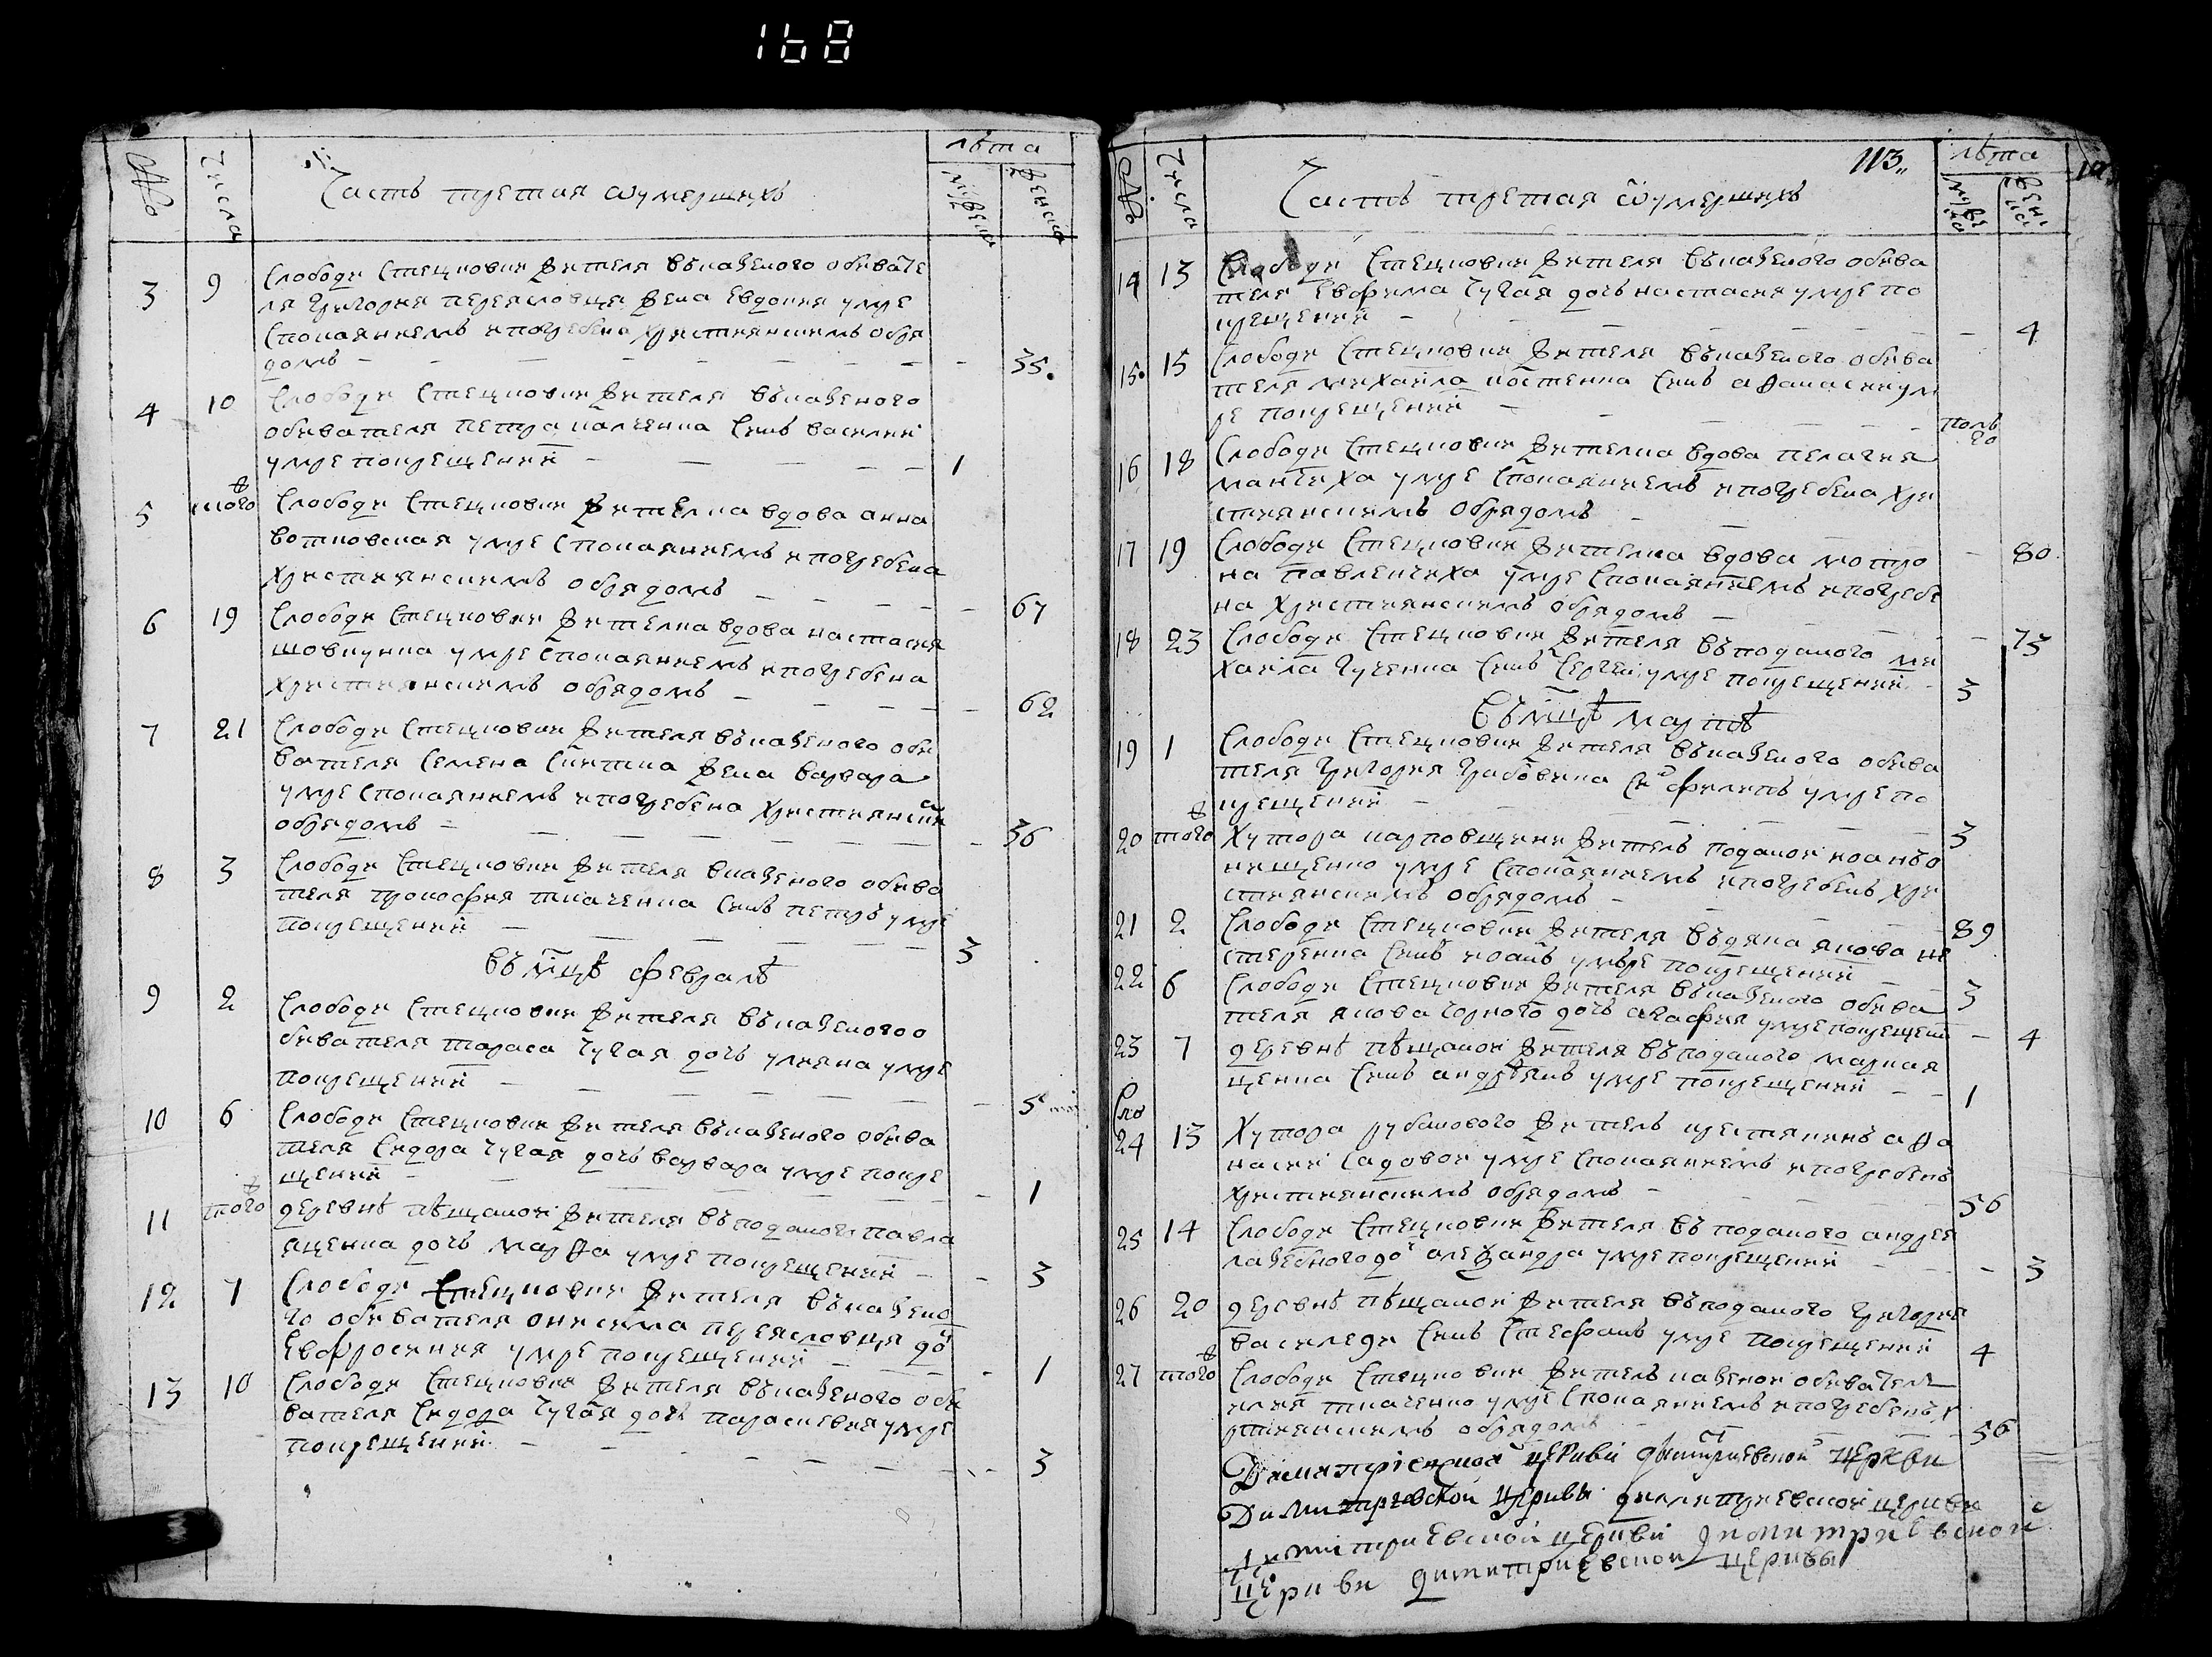 168
Часть третая ѡумершихъ
№
Числа
лѣта
мужеска
женска
3 9 Слободи Стецковки жителя въказеного обивате
ля Григория переясловця жена Евдокия умре
Спокаяниемъ ипогребена християнскимъ обря
домъ 35.
4 10 Слободи Стецковки жителя въказеного
обивателя петра калченка Синъ василий
умре покрещений 1
5 того ж Слободи Стецковки жителка вдова анна
вотковская умре Спокаяниемъ и погребена
християнскимъ обрядомъ 67
6 19 Слободи Стецковки жителка вдова настасия
умре Спокаяниемъ и погребена
християнскимъ обрядомъ 62
7 21 Слободи Стецковки жителя въказеного оби
вателя Семена Скитка жена варвара
умре Спокаяниемъ ипогребена християнски
обрядомъ 36
8 3 Слободи Стецковки жителя вказеного обива
теля прокофия ткаченка Синъ петръ умре
покрещений 3
въ мцѣ февралѣ
9 2 Слободи Стецковки жителя въказеного о
бивателя тараса Чугая дочь улияна умре
покрещений 5
10 6 Слободи Стецковки жителя въказеного обива
теля Сидора Чугая дочь варвара умре покре
щений 1
11 того ж деревнѣ пѣщаной жителя въподаного павла
яценка дочь марѳа умре покрещений 3
12 7 Слободи Стецковки жителя въказено
го обивателя онисима переясловця до
Евфросиния умре покрещений 1
13 10 Слободи Стецковки жителя въказеного оби
вателя Сидора Чугая дочь параскевия умре
покрещений 3
113
Часть третая ѡумершихъ
№
Числа
лѣта
мужеска
женска
14 13 Слободи Стецковки жителя въказеного обива
теля Евфима Чугая дочь настасия умре по
крещений 4
15. 15 Слободи Стецковки жителя въказеного обива
теля михаила костенка Синъ аѳанасий ум
ре покрещений полъ
го
16 18 Слободи Стецковки жителка вдова пелагия
манчиха умре Спокаяниемъ ипогребена хри
стиянскимъ обрядомъ 80
17 19 Слободи Стецковки жителка вдова мотро
на павленчиха умре Спокаяниемъ ипогребе
на християнскимъ обрядомъ 73
18 23 Слободи Стецковки жителя въподаного ми
хаила Гученка Синъ Сергей умре покрещений 3
въ мцѣ мартѣ
19 1 Слободи Стецковки жителя въказеного обива
теля Григория Грабовика Си филипъ умре по
крещений 3
20 того ж Хутора карповщини житель поданой иоанъ о
нищенко умре Спокаяниемъ ипогребенъ хри
стиянскимъ обрядомъ 89
21 2 Слободи Стецковки жителя въдяка якова не
стеренка Синъ иоанъ умъре покрещений 3
22 6 Слободи Стецковки жителя въказеного обива
теля якова Чорного дочь агафия умре покрещени 4
23 7 деревнѣ пѣщаной жителя въподаного марка я
щенка Синъ андреянъ умре покрещений 1
Сло
24 13 Хутора рубанового житель крестянинъ аѳа
насий Садовой умре Спокаяниемъ ипогребенъ
християнскимъ обрядомъ 56
25 14 Слободи Стецковки жителя въ поданого андрея
лазебного до алеѯандра умре покрещений 3
26 20 деревнѣ пѣщаной жителя въподаного Григория
василеди Синъ Стефанъ умре покрещений 4
27 того ж Слободи Стецковки житель казеной обиватель
илия ткаченко умре Спокаяниемъ ипогребенъ х
ристиянскимъ обрядомъ 56
Димитріевской церкви димитриевской церкви
Димитриевской церквы димитриевской церкви
Димитриевской церкви димитриевской
церкви димитриевской церквы